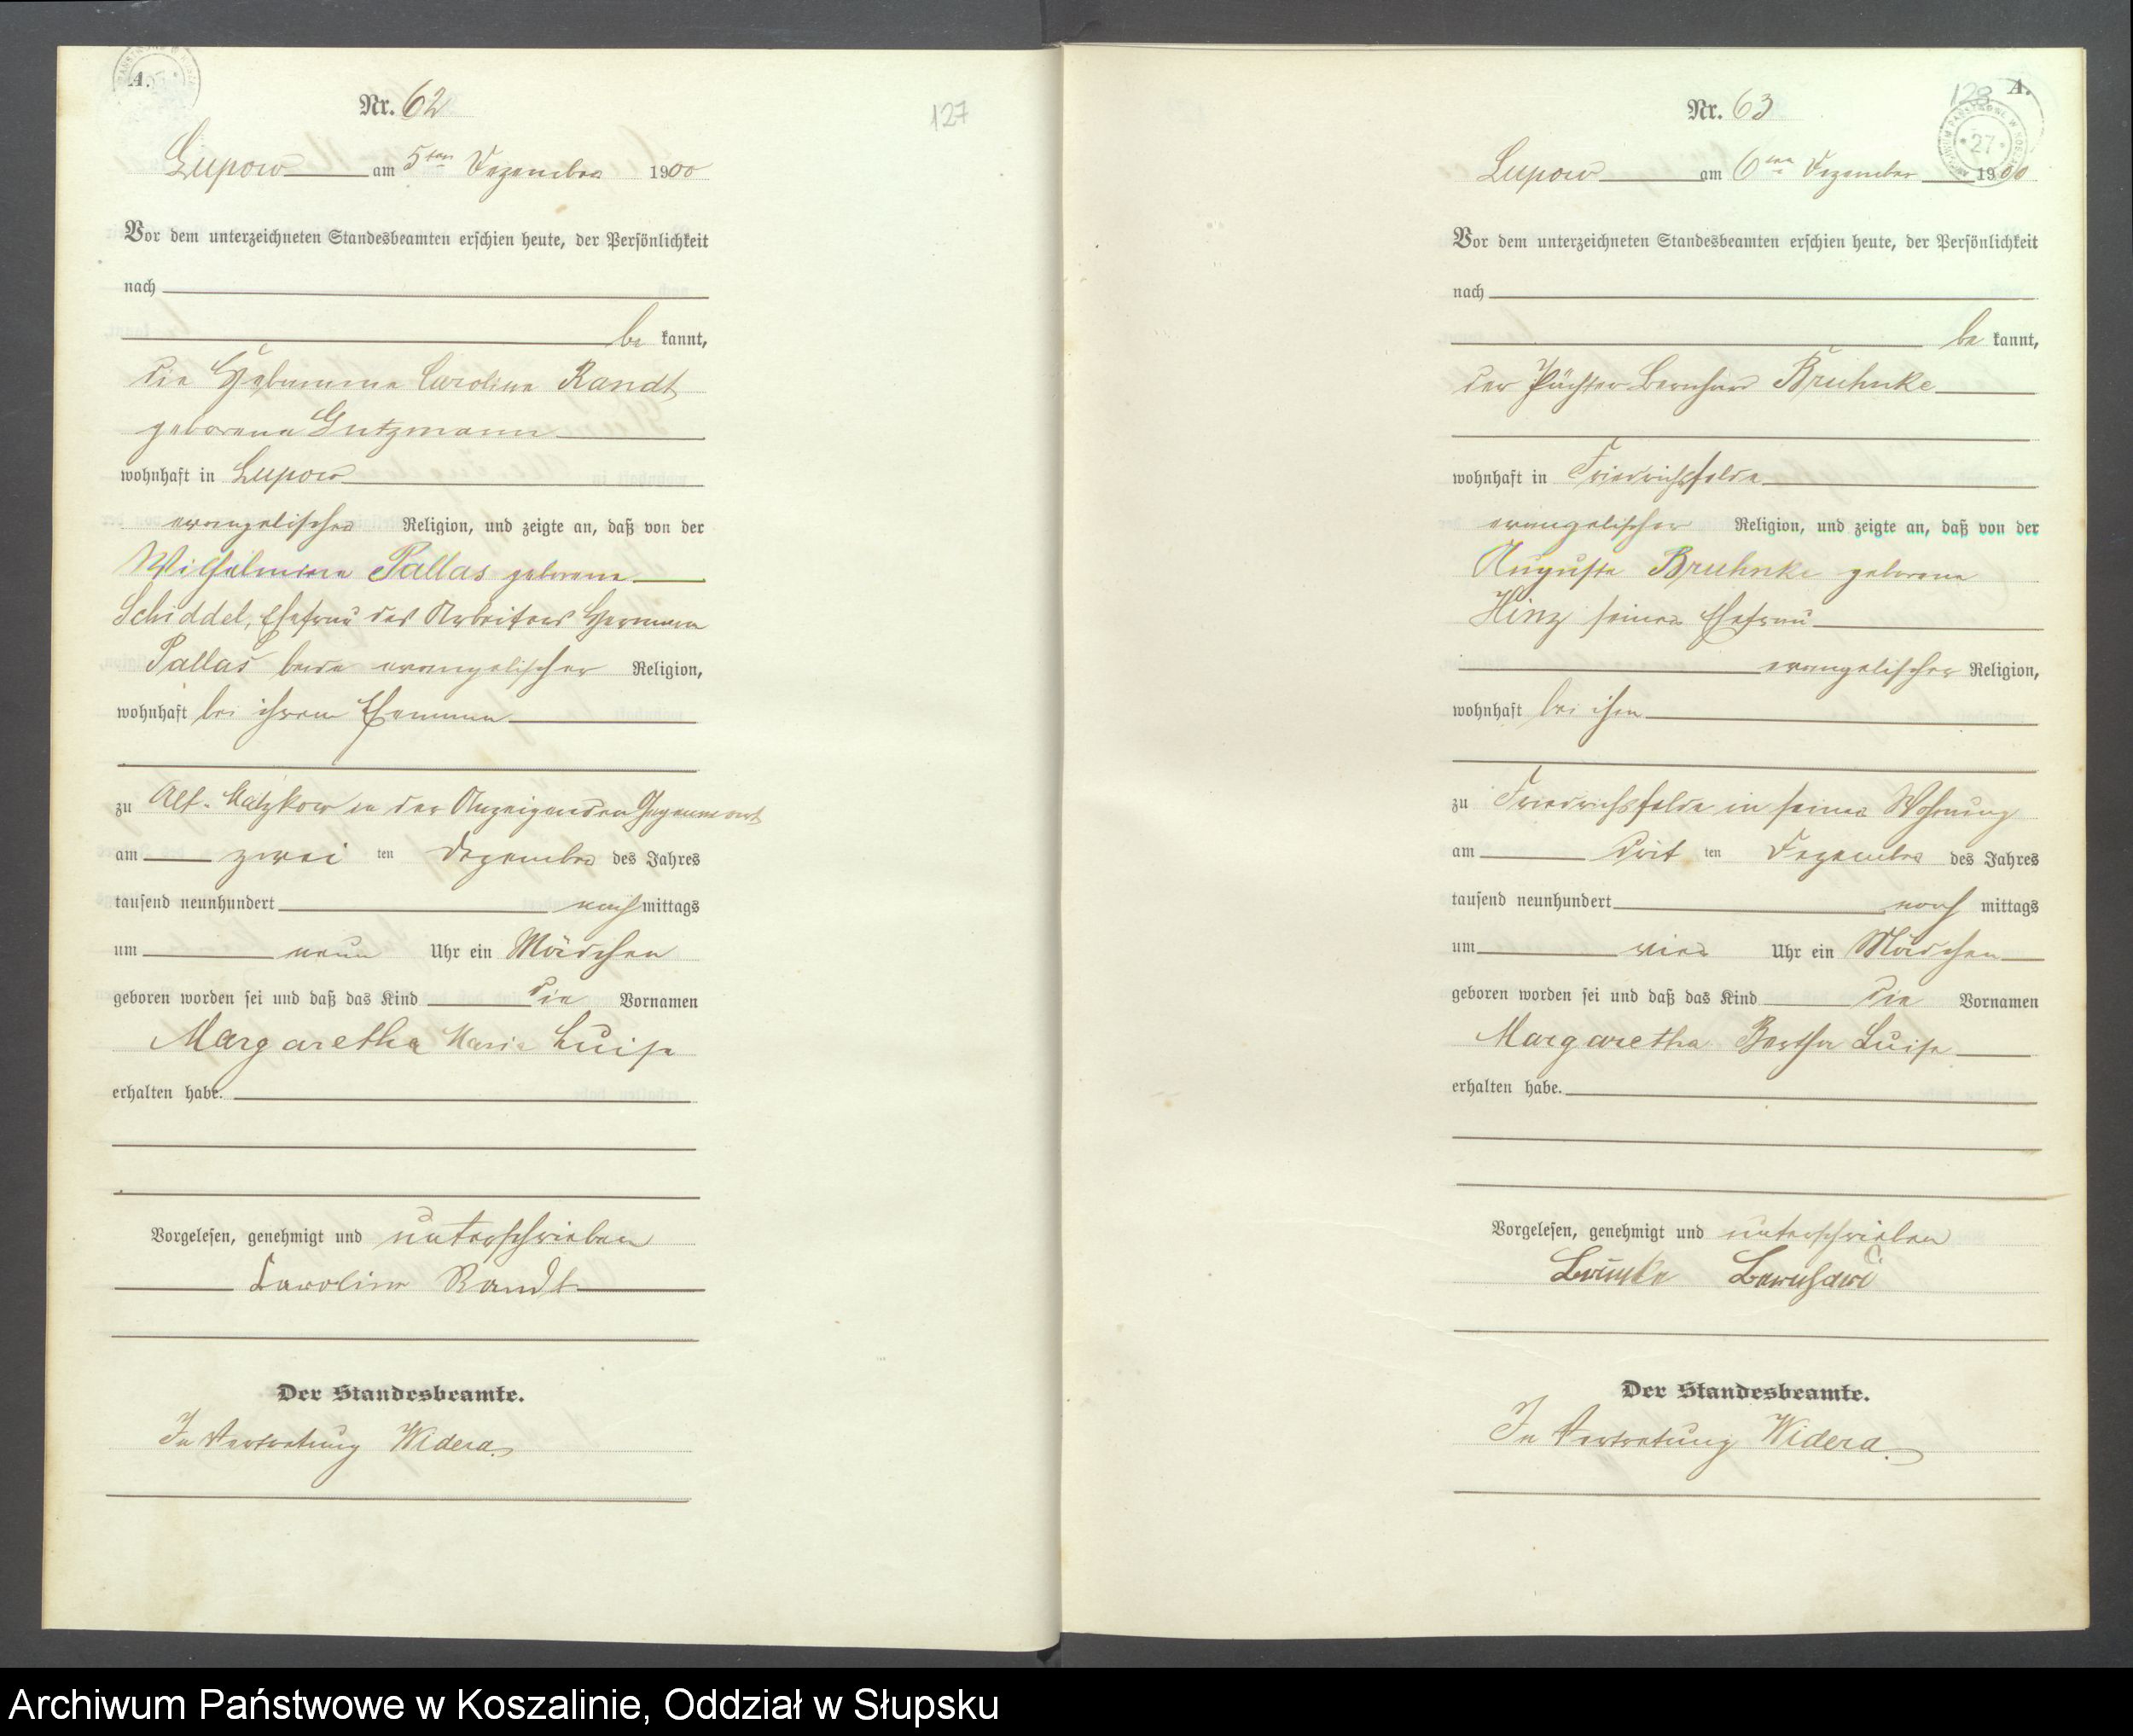 A.
Nr. 62
127
Lupow am 5ten Dezember 1900
Vor dem unterzeichneten Standesbeamten erschien heute, der Persönlichkeit
nach
be kannt,
die Hebamme Caroline Randt
geborene Gutzmann
wohnhaft in Lupow
evangelischer Religion, und zeigte an, daß von der
Wilhelmine Pallas geborene
Schiddel, Ehefrau des Arbeiters Hermann
Pallas beide evangelischer Religion,
wohnhaft bei ihrem Ehemann
zu Alt-Malzkow in der Anzeigenden Gegenwart
am zwei ten Dezember des Jahres
tausend neunhundert nachmittags
um neun Uhr ein Mädchen
geboren worden sei und daß das Kind die Vornamen
Margaretha Maria Luise
erhalten habe.
Vorgelesen, genehmigt und unterschrieben
Caroline Randt
Der Standesbeamte.
In Vertretung Widera.
128 A.
ARCHIWUM PAŃSTWOWE W
27
Nr. 63
Lupow am 6ten Dezember 1900
Vor dem unterzeichneten Standesbeamten erschien heute, der Persönlichkeit
nach
be kannt,
der Pächter Bernhard Bruhnke
wohnhaft in Friedrichsfelde
evangelischer Religion, und zeigte an, daß von der
Auguste Bruhnke geborene
Hinz seiner Ehefrau
evangelischer Religion,
wohnhaft bei ihm
zu Friedrichsfelde in seiner Wohnung
am drit ten Dezember des Jahres
tausend neunhundert nach mittags
um vier Uhr ein Mädchen
geboren worden sei und daß das Kind die Vornamen
Margaretha Bertha Luise
erhalten habe.
Vorgelesen, genehmigt und unterschrieben
Bernhard
Der Standesbeamte.
In Vertretung Widera.
Archiwum Państwowe w Koszalinie, Oddział w Słupsku